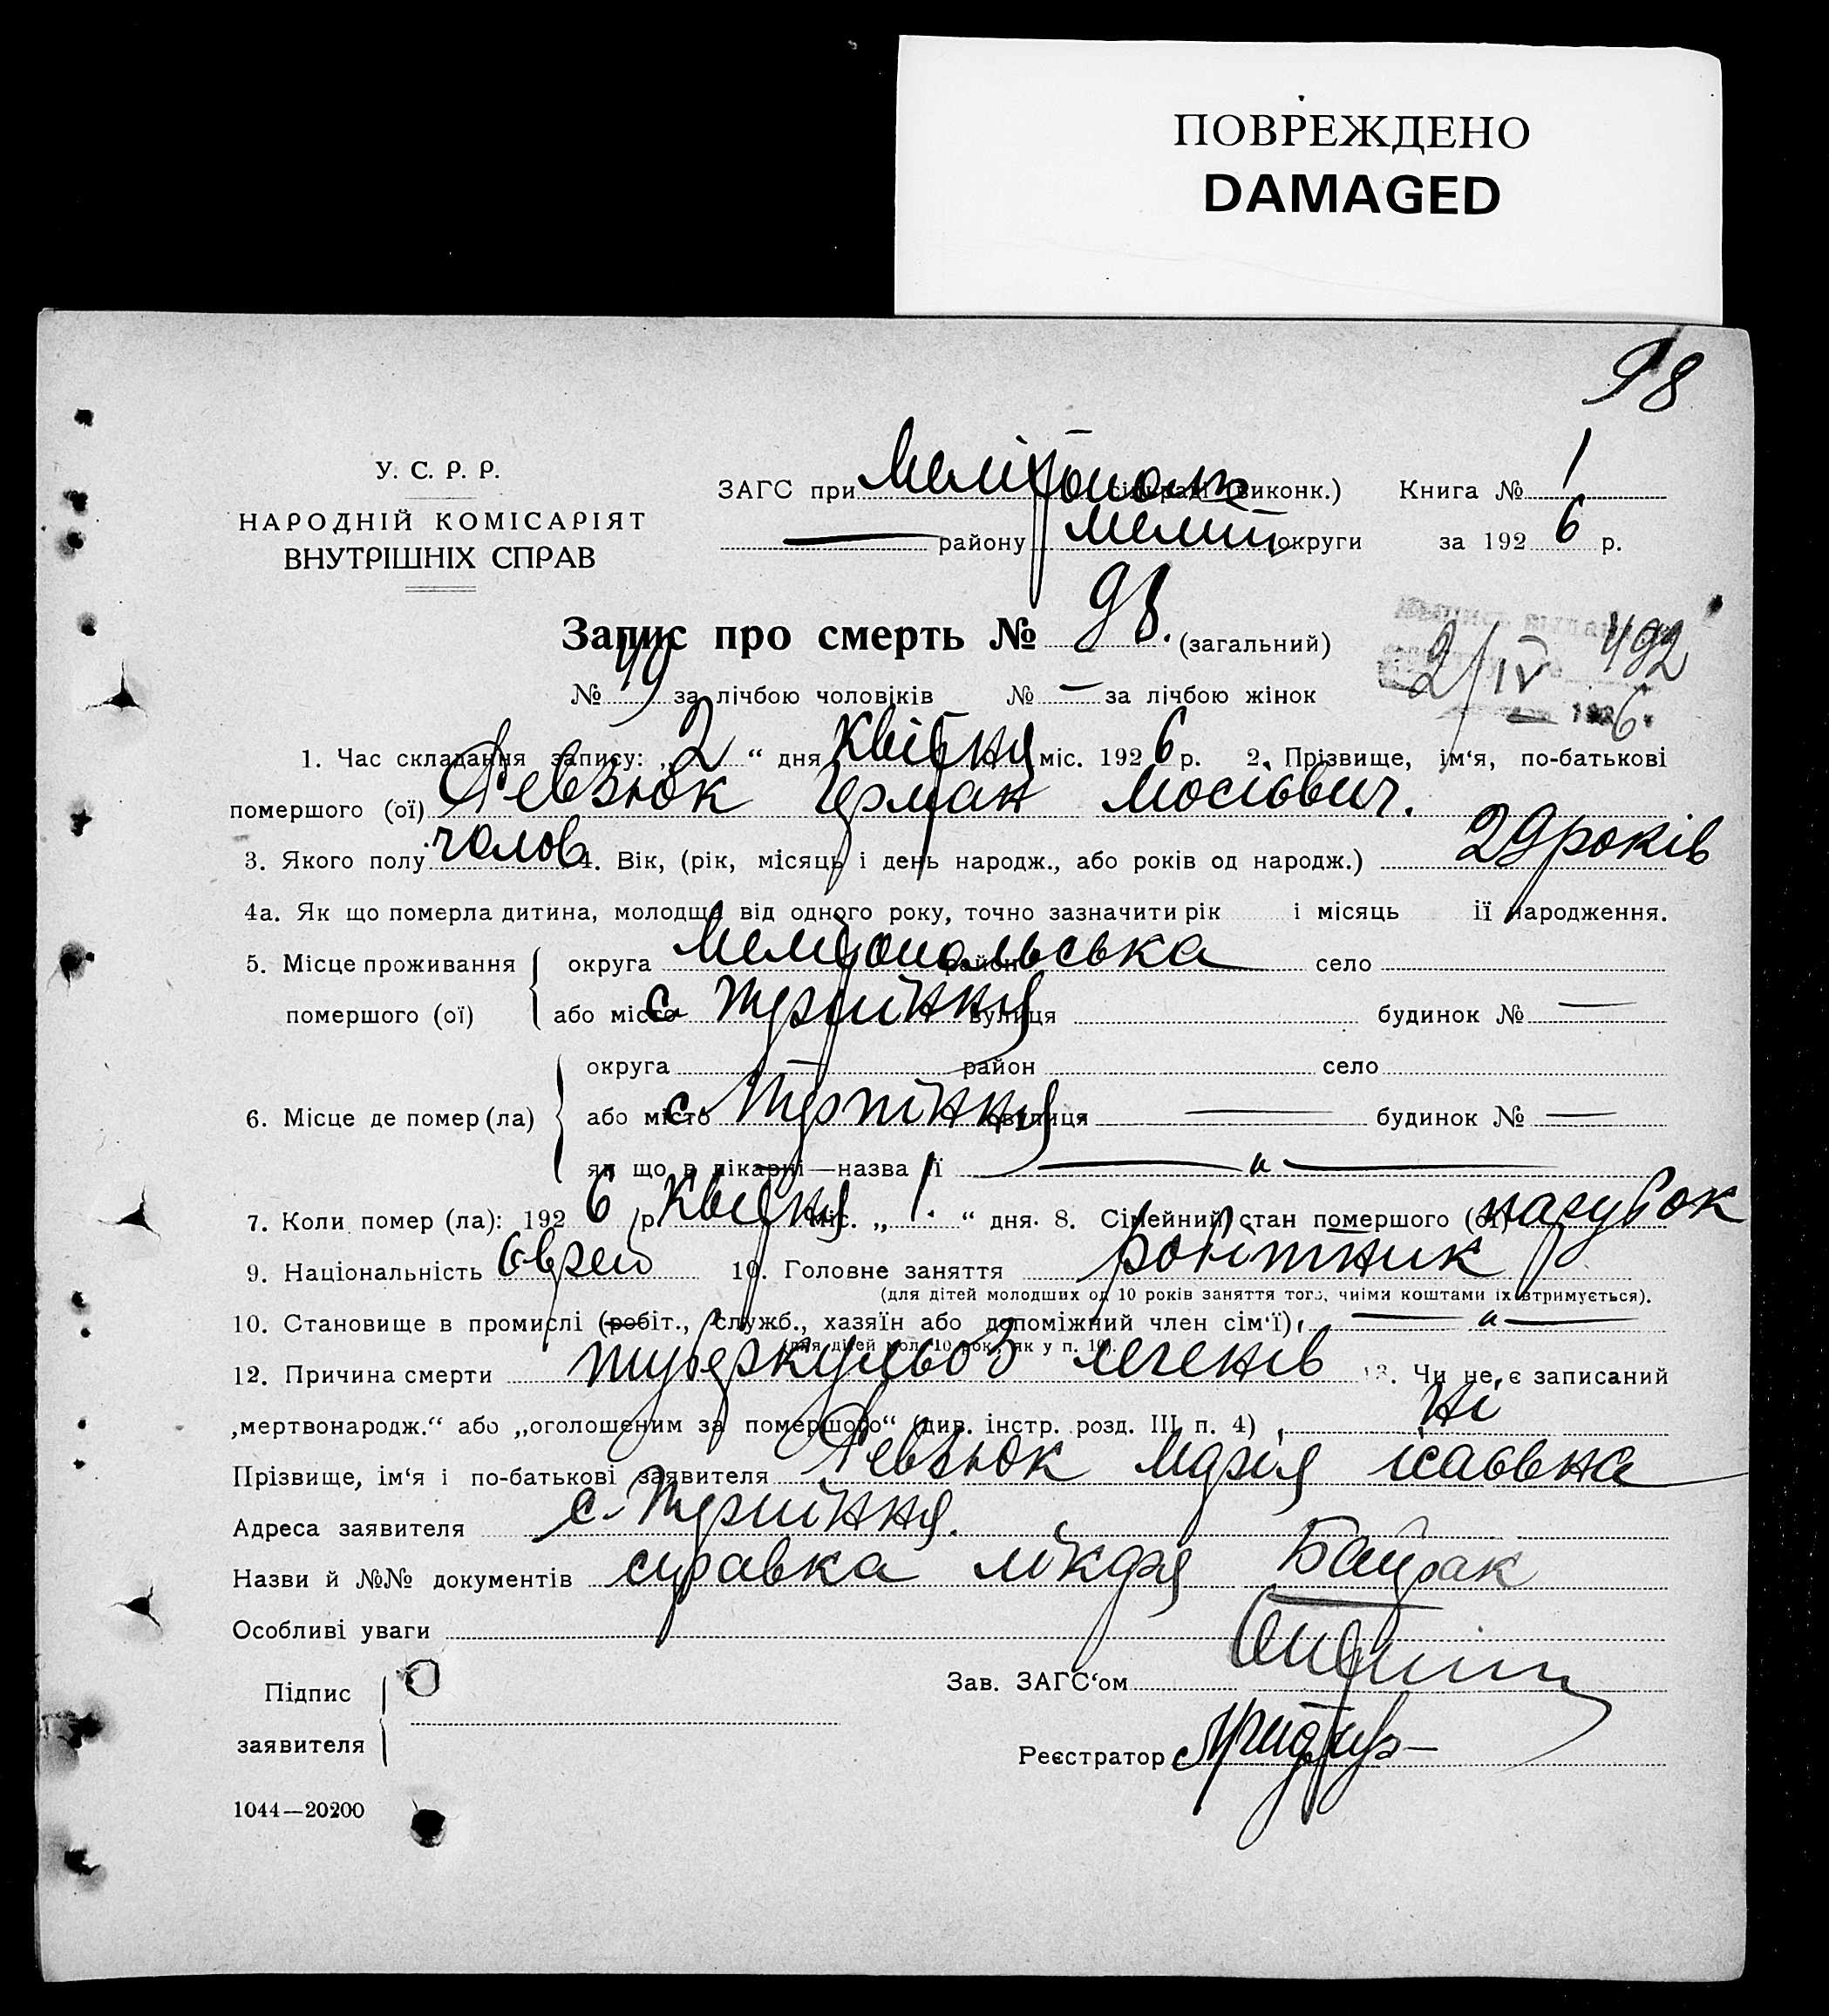 ПОВРЕЖДЕНО
DAMAGED
98
У. С. Р. Р.
НАРОДНІЙ КОМІСАРІЯТ
ВНУТРІШНІХ СПРАВ
ЗАГС при Мелітополь сільраді (виконк.) Книга № 1
— району Меліт округи за 1926 р.
Запис про смерть № 98. (загальний)
492
2/IV 1926.
№ 49 за лічбою чоловіків № — за лічбою жінок
1. Час складання запису: „2“ дня Квітня міс. 1926 р. 2. Прізвище, ім‘я, по-батькові
помершого (ої) Ревзюк Герман Мосієвич.
3. Якого полу чолов 4. Вік, (рік, місяць і день народж., або років од народж.) 29 років
4а. Як що померла дитина, молодша від одного року, точно зазначити рік і місяць її народження.
5. Місце проживання помершого (ої) округа Мелітопольська район село
або місто с. Терпіння вулиця будинок № —
6. Місце де помер (ла) округа район село
або місто с. Терпіння вулиця — будинок № —
як що в лікарні—назва її — „ —
7. Коли помер (ла): 1926 р. Квітня міс. „1.“ дня. 8. Сімейний стан помершого (ої) парубок
9. Національність Єврей 10. Головне заняття робітник
(для дітей молодших од 10 років заняття того, чиїми коштами їх втримується).
10. Становище в промислі (робіт., служб., хазяїн або допоміжний член сім‘ї), — „ —
(для дітей мол. 10 рок., як у п. 10).
12. Причина смерти туберкульоз легенів 13. Чи не є записаний
„мертвонародж.“ або „оголошеним за помершого“ (див. інстр. розд. III п. 4) Ні
Прізвище, ім‘я і по-батькові заявителя Ревзюк Марія Ісаєвна
Адреса заявителя с. Терпіння.
Назви й №№ документів справка лікаря Байрак
Особливі уваги
Підпис заявителя
Зав. ЗАГС‘ом
Реєстратор
1044—20200